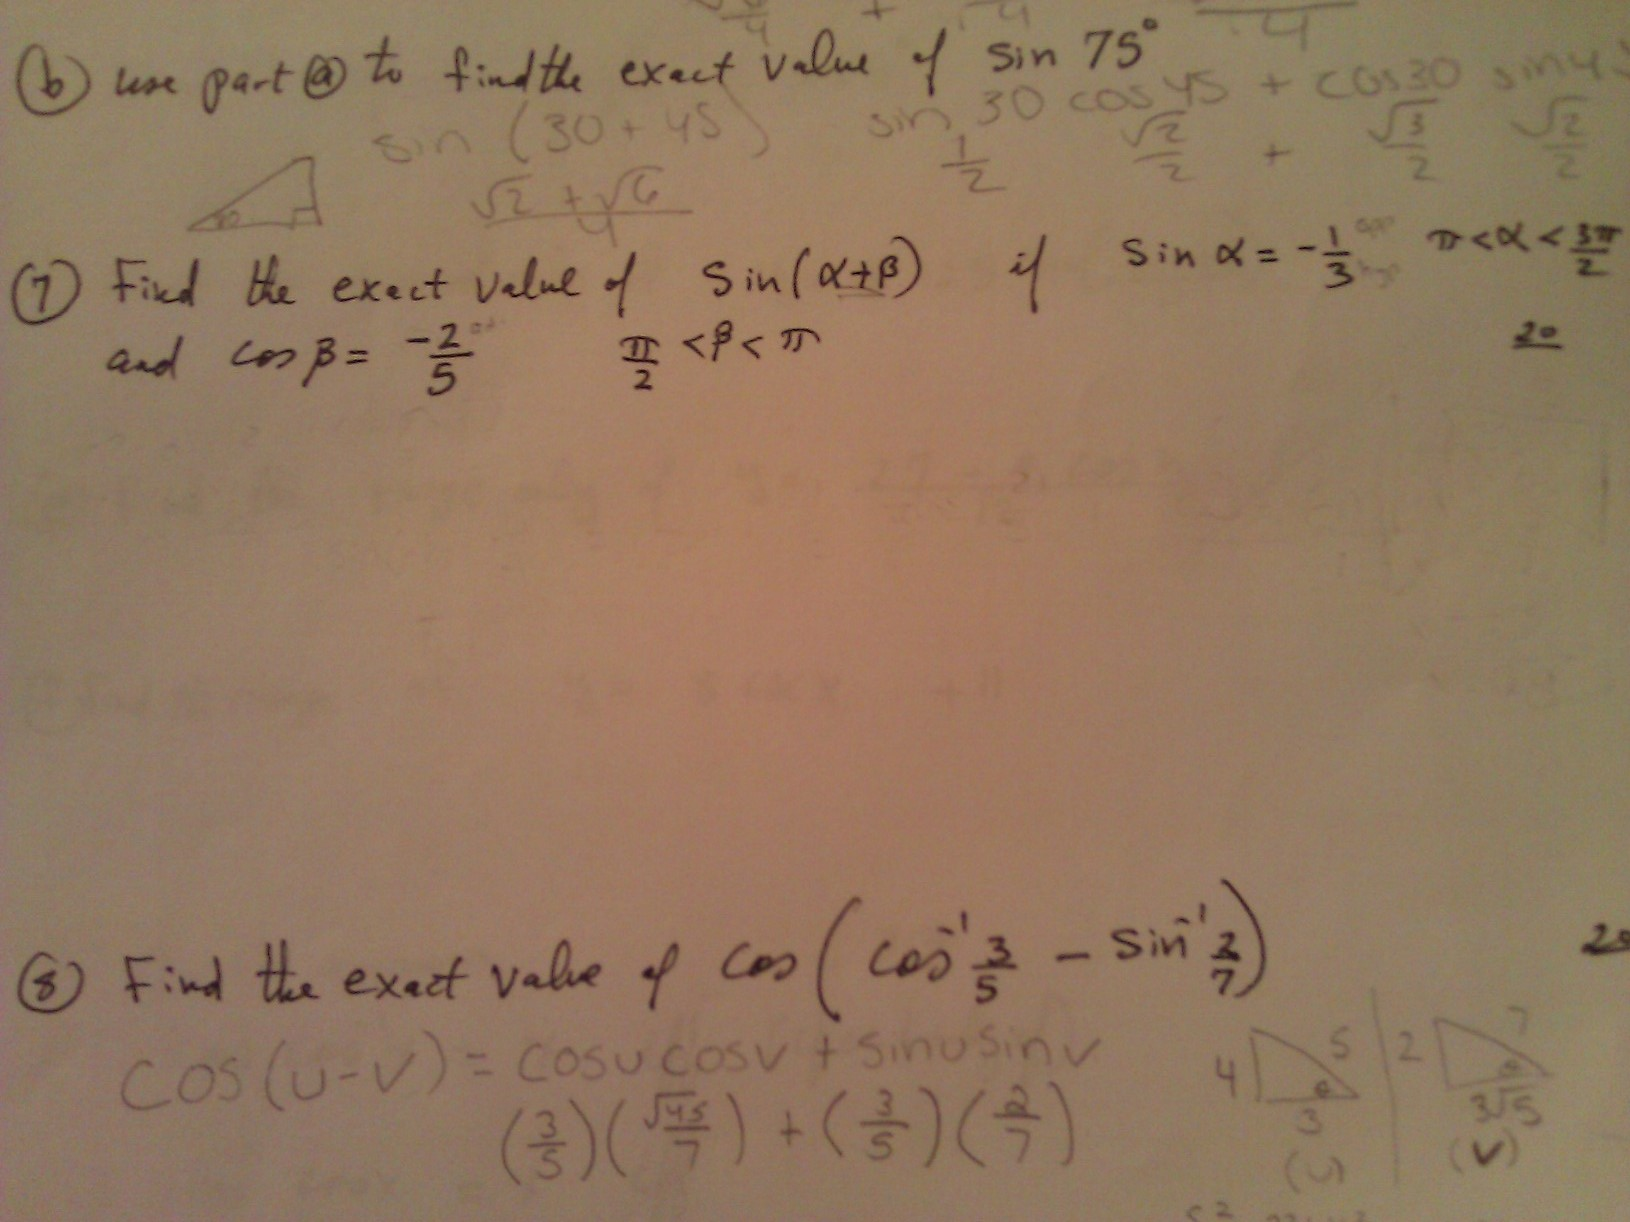 (b) use part (a) to find the exact value of sin 75°
sin (30 + 45) sin 30 cos 45 + cos 30 sin 45
1/2 √2/2 + √3/2 √2/2
√2 + √6 / 4
(7) Find the exact value of sin(α+β) if sin α = -1/3 π < α < 3π/2
and cos β = -2/5 π/2 < β < π 20
(8) Find the exact value of cos(cos⁻¹ 3/5 - sin⁻¹ 2/7) 20
cos(u-v) = cosu cosv + sinu sinv
(3/5)(√45/7) + (3/5)(2/7)
4 5 3 (u)
2 7 3√5 (v)